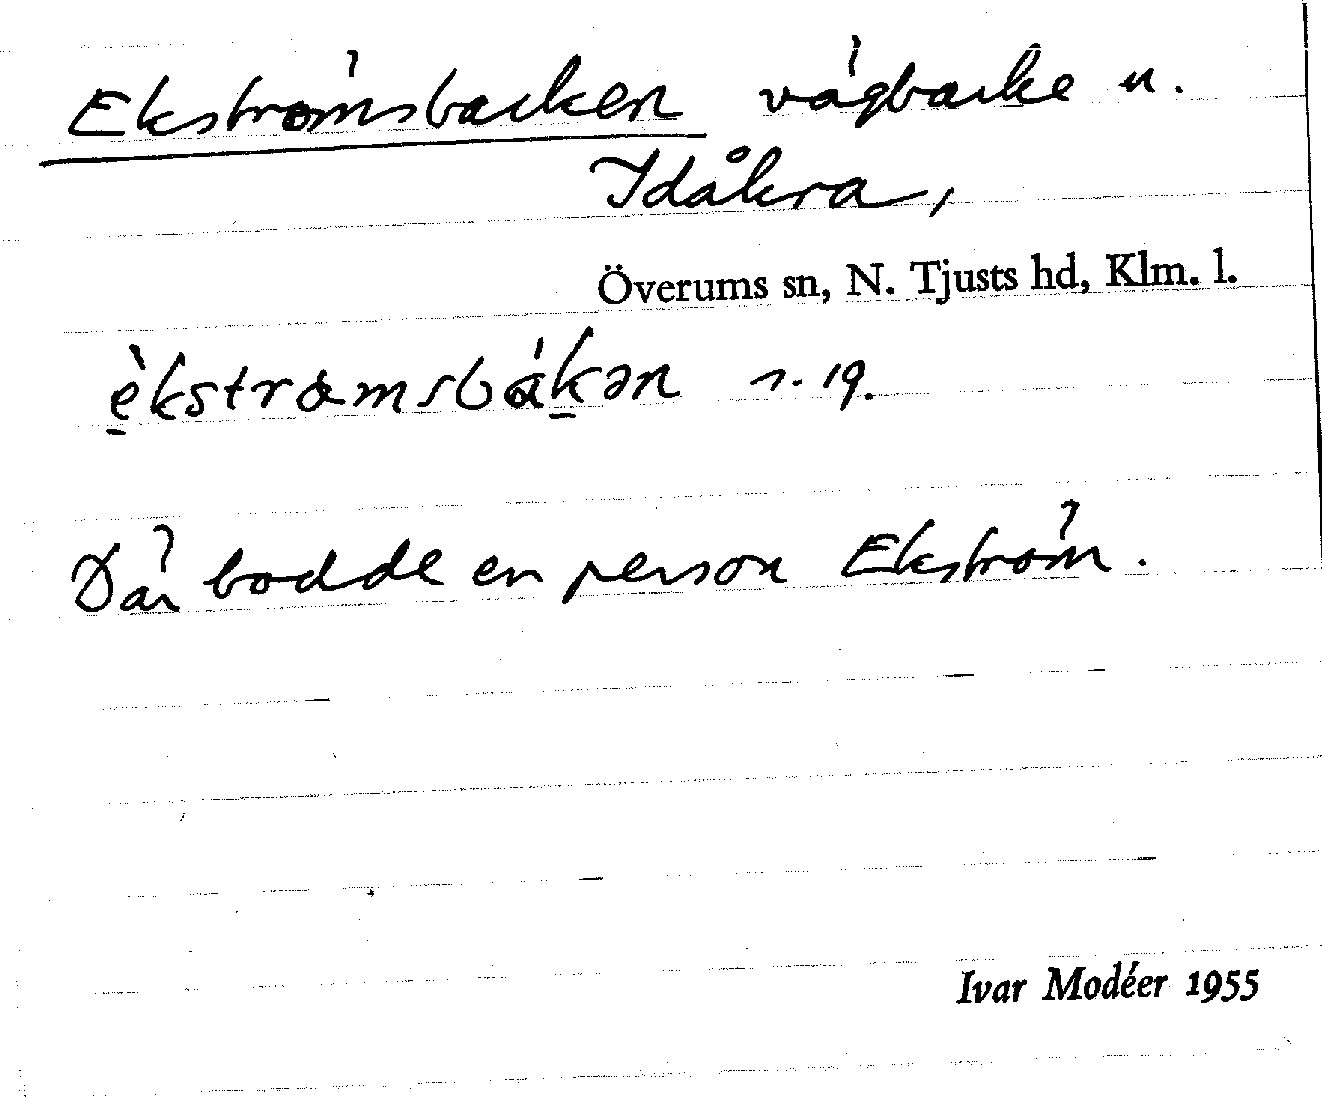 Ekströmsbacken vägbacke n.
Idåkra,
Överums sn, N. Tjusts hd, Klm. l.
r. 19.
Där bodde en person Ekström.
Ivar Modéer 1955